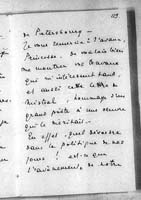 119
de Petersbourg —
Je vous remercie d'avance,
Princesse, de vouloir bien
me montrer vos travaux
qui m'intéressent tant,
et aussi cette lettre de
Mistral, hommage d'un
grand poète à une œuvre
qui le méritait.
En effet, quel désastre
dans la politique de nos
jours ! est-ce que
l'avènement de notre